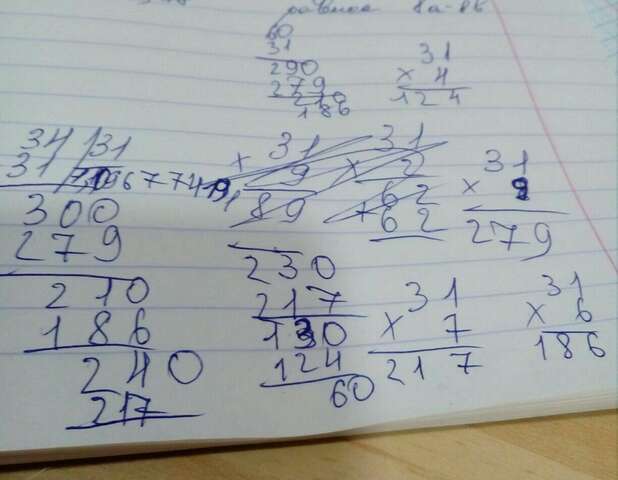 равно 8а-8b
60
31
290
279
210
186
31
× 4
124
34 31
31
300
279
210
186
240
217
31
× 9
89
230
217
130
124
60
31
× 2
62
62
31
× 9
279
31
× 7
217
31
× 6
186